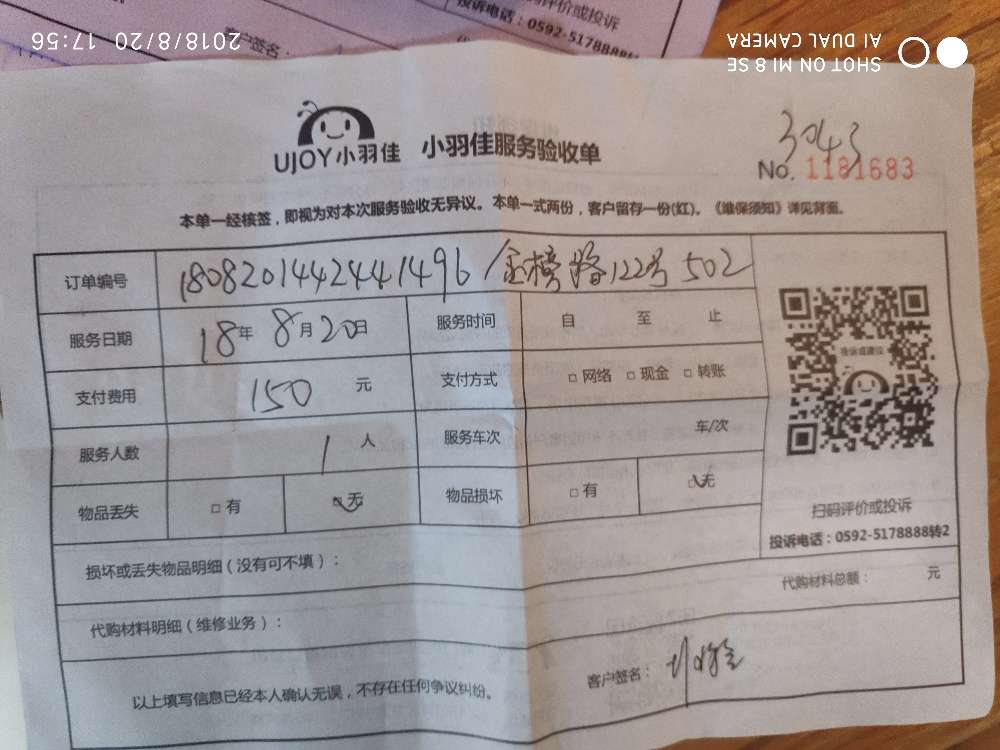 评价或投诉
投诉电话：0592-5178888转
户签名：
2018/8/20 17:56
SHOT ON MI 8 SE
AI DUAL CAMERA
UJOY小羽佳 小羽佳服务验收单
3043
No. 1181683
本单一经核签，即视为对本次服务验收无异议。本单一式两份，客户留存一份(红)。《维保须知》详见背面。
订单编号 18082014424441496/金榜路122号502
服务日期 18年8月20日 服务时间 自 至 止
支付费用 150元 支付方式 □网络 □现金 □转账
服务人数 1人 服务车次 车/次
物品丢失 □有 ☑无 物品损坏 □有 ☑无
投诉或建议
扫码评价或投诉
投诉电话：0592-5178888转2
损坏或丢失物品明细（没有可不填）：
代购材料明细（维修业务）：
代购材料总额： 元
以上填写信息已经本人确认无误，不存在任何争议纠纷。
客户签名：